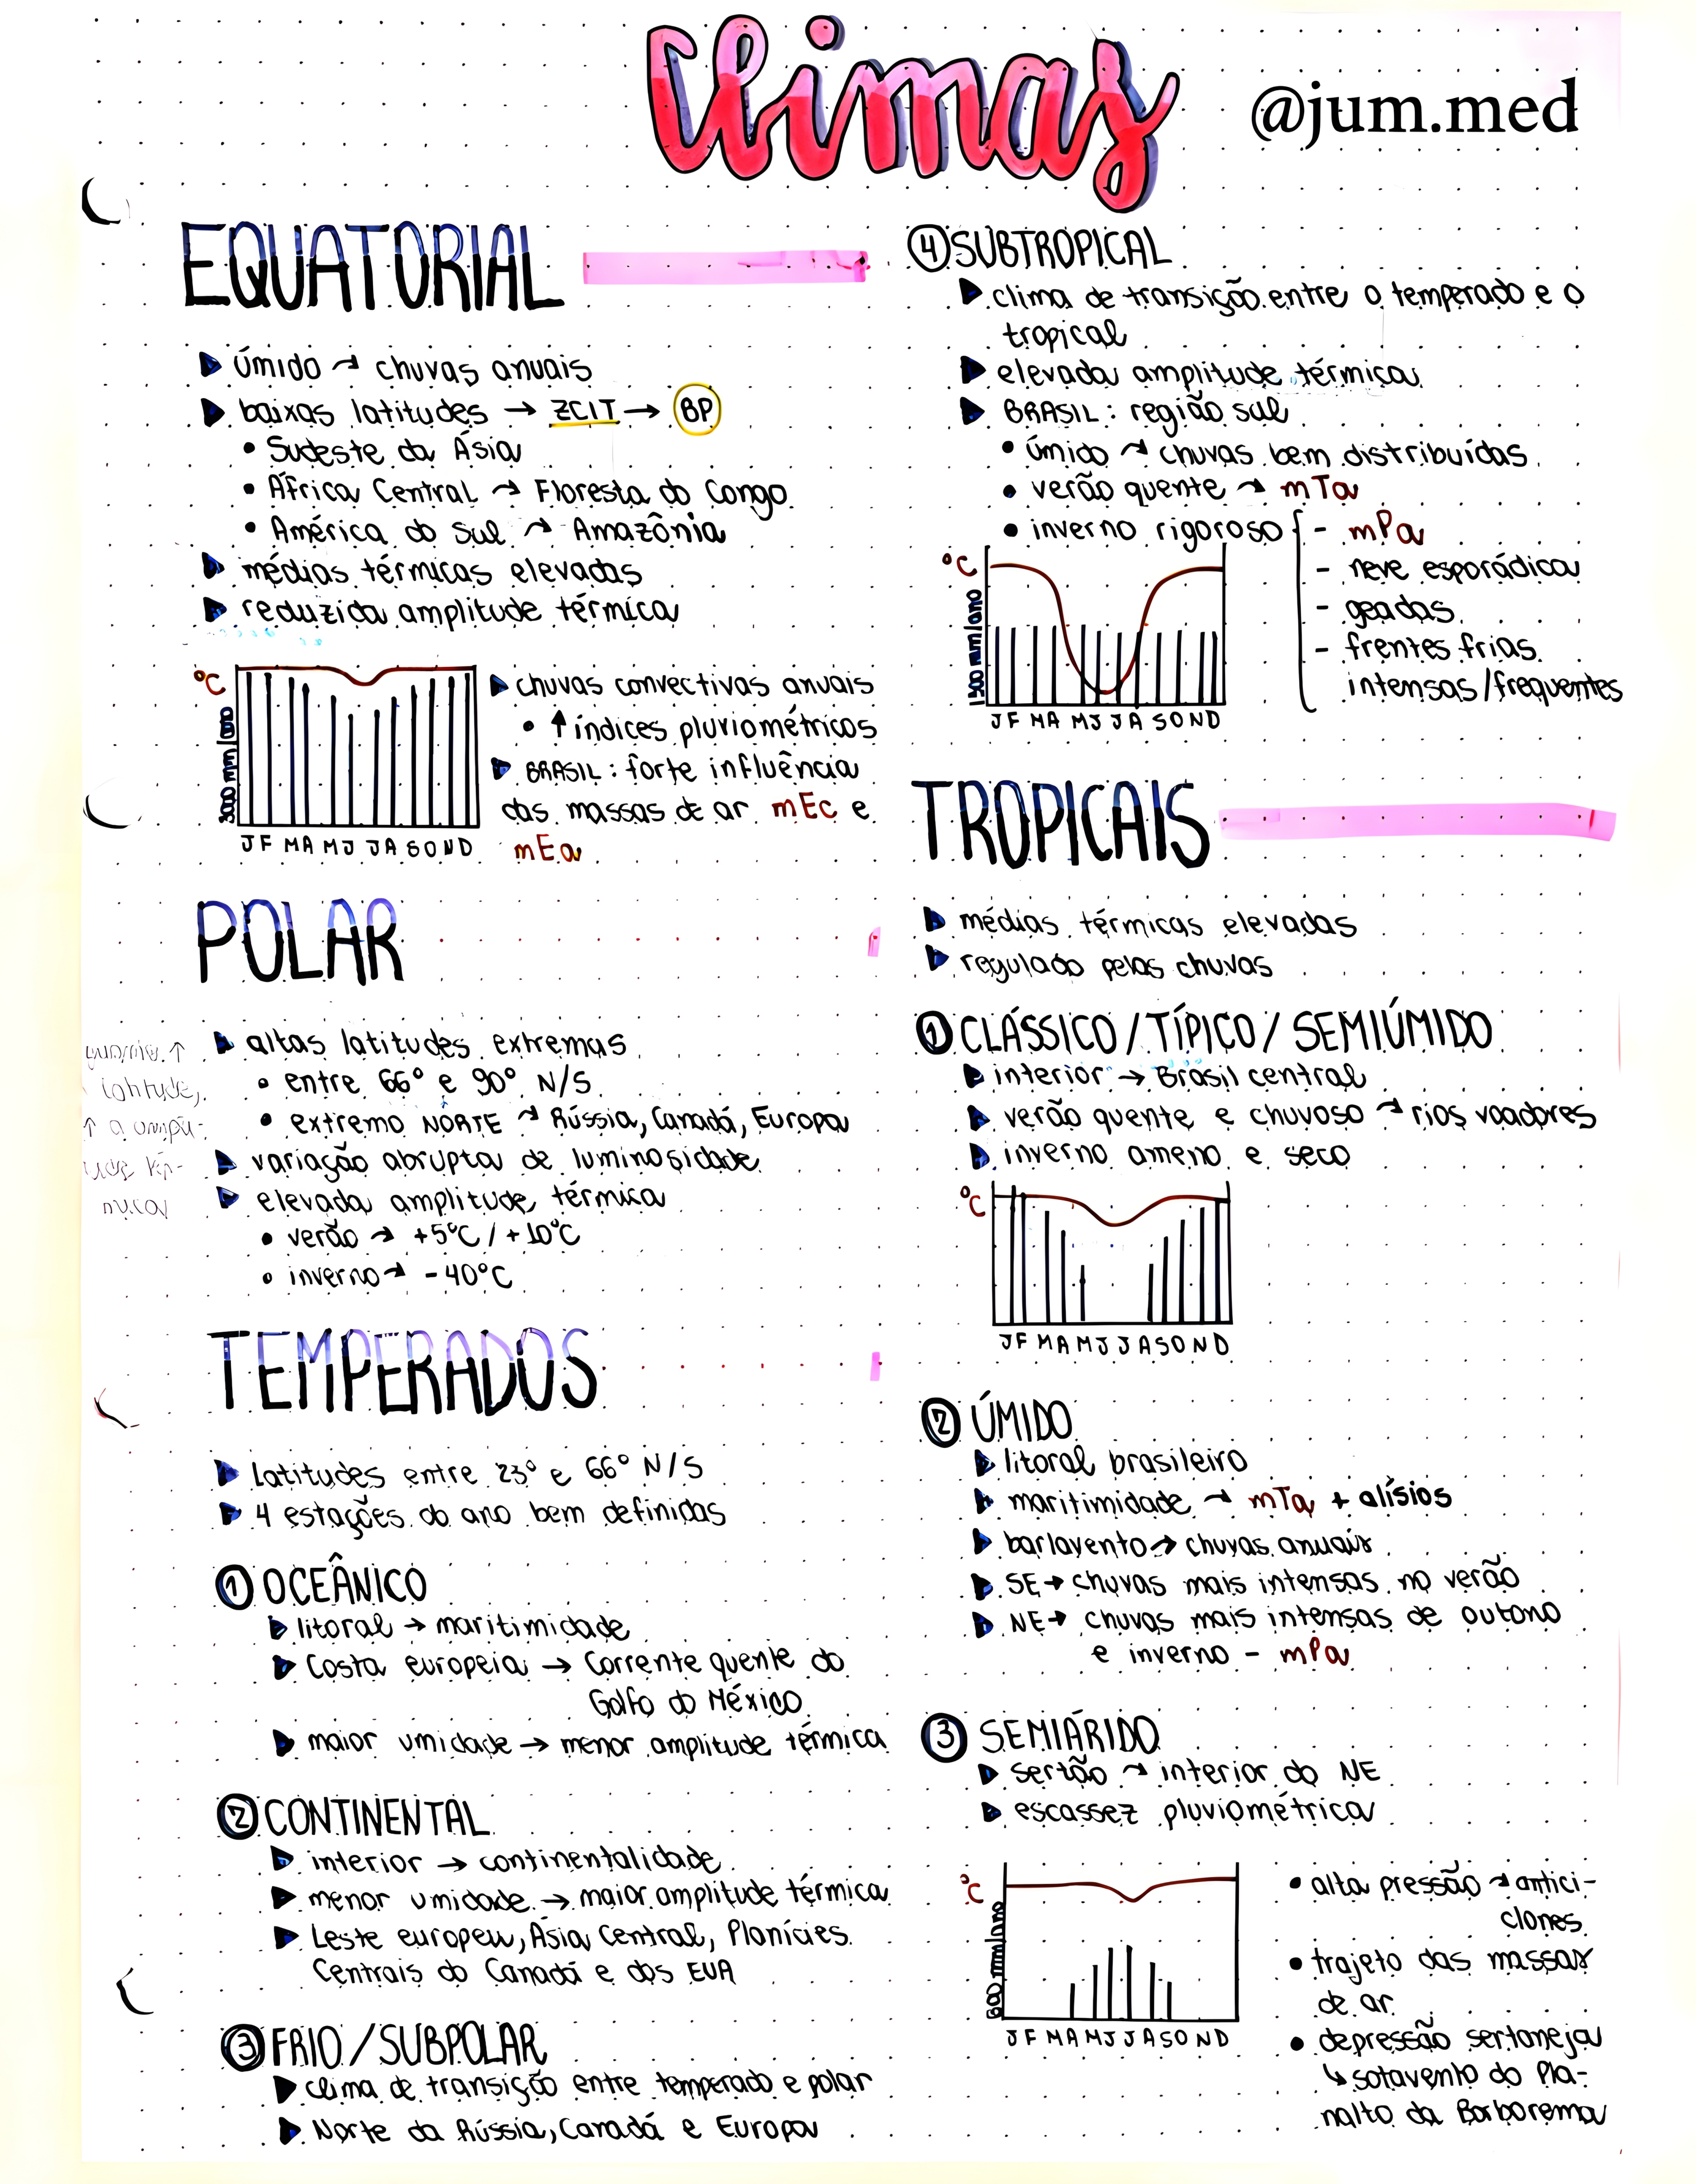 Climas
@jum.med
EQUATORIAL
úmido → chuvas anuais
baixas latitudes → ZCIT → BP
• Sudeste da Ásia
• África Central → Floresta do Congo
• América do Sul → Amazônia
médias térmicas elevadas
reduzida amplitude térmica
°C
3000 mm/ano
J F M A M J J A S O N D
chuvas convectivas anuais
• ↑ índices pluviométricos
BRASIL: forte influência
das massas de ar mEc e
mEa
POLAR
altas latitudes extremas
• entre 66° e 90° N/S
• extremo NORTE → Rússia, Canadá, Europa
variação abrupta de luminosidade
elevada amplitude térmica
• verão → +5°C / +10°C
• inverno → -40°C
TEMPERADOS
Latitudes entre 23° e 66° N/S
4 estações do ano bem definidas
1 OCEÂNICO
litoral → maritimidade
Costa europeia → Corrente quente do
Golfo do México
maior umidade → menor amplitude térmica
2 CONTINENTAL
interior → continentalidade
menor umidade → maior amplitude térmica
Leste europeu, Ásia Central, Planícies
Centrais do Canadá e dos EUA
3 FRIO / SUBPOLAR
clima de transição entre temperado e polar
Norte da Rússia, Canadá e Europa
4 SUBTROPICAL
clima de transição entre o temperado e o
tropical
elevada amplitude térmica
BRASIL: região sul
• úmido → chuvas bem distribuídas
• verão quente → mTa
• inverno rigoroso { - mPa
- neve esporádica
- geadas
- frentes frias
intensas/frequentes
°C
1500 mm/ano
J F M A M J J A S O N D
TROPICAIS
médias térmicas elevadas
regulado pelas chuvas
1 CLÁSSICO / TÍPICO / SEMIÚMIDO
interior → Brasil central
verão quente e chuvoso → rios voadores
inverno ameno e seco
°C
J F M A M J J A S O N D
2 ÚMIDO
litoral brasileiro
maritimidade → mTa + alísios
barlavento → chuvas anuais
SE → chuvas mais intensas no verão
NE → chuvas mais intensas de outono
e inverno - mPa
3 SEMIÁRIDO
sertão → interior do NE
escassez pluviométrica
°C
600 mm/ano
J F M A M J J A S O N D
• alta pressão → antici-
clones
• trajeto das massas
de ar
• depressão sertaneja
↳ sotavento do Pla-
nalto da Borborema